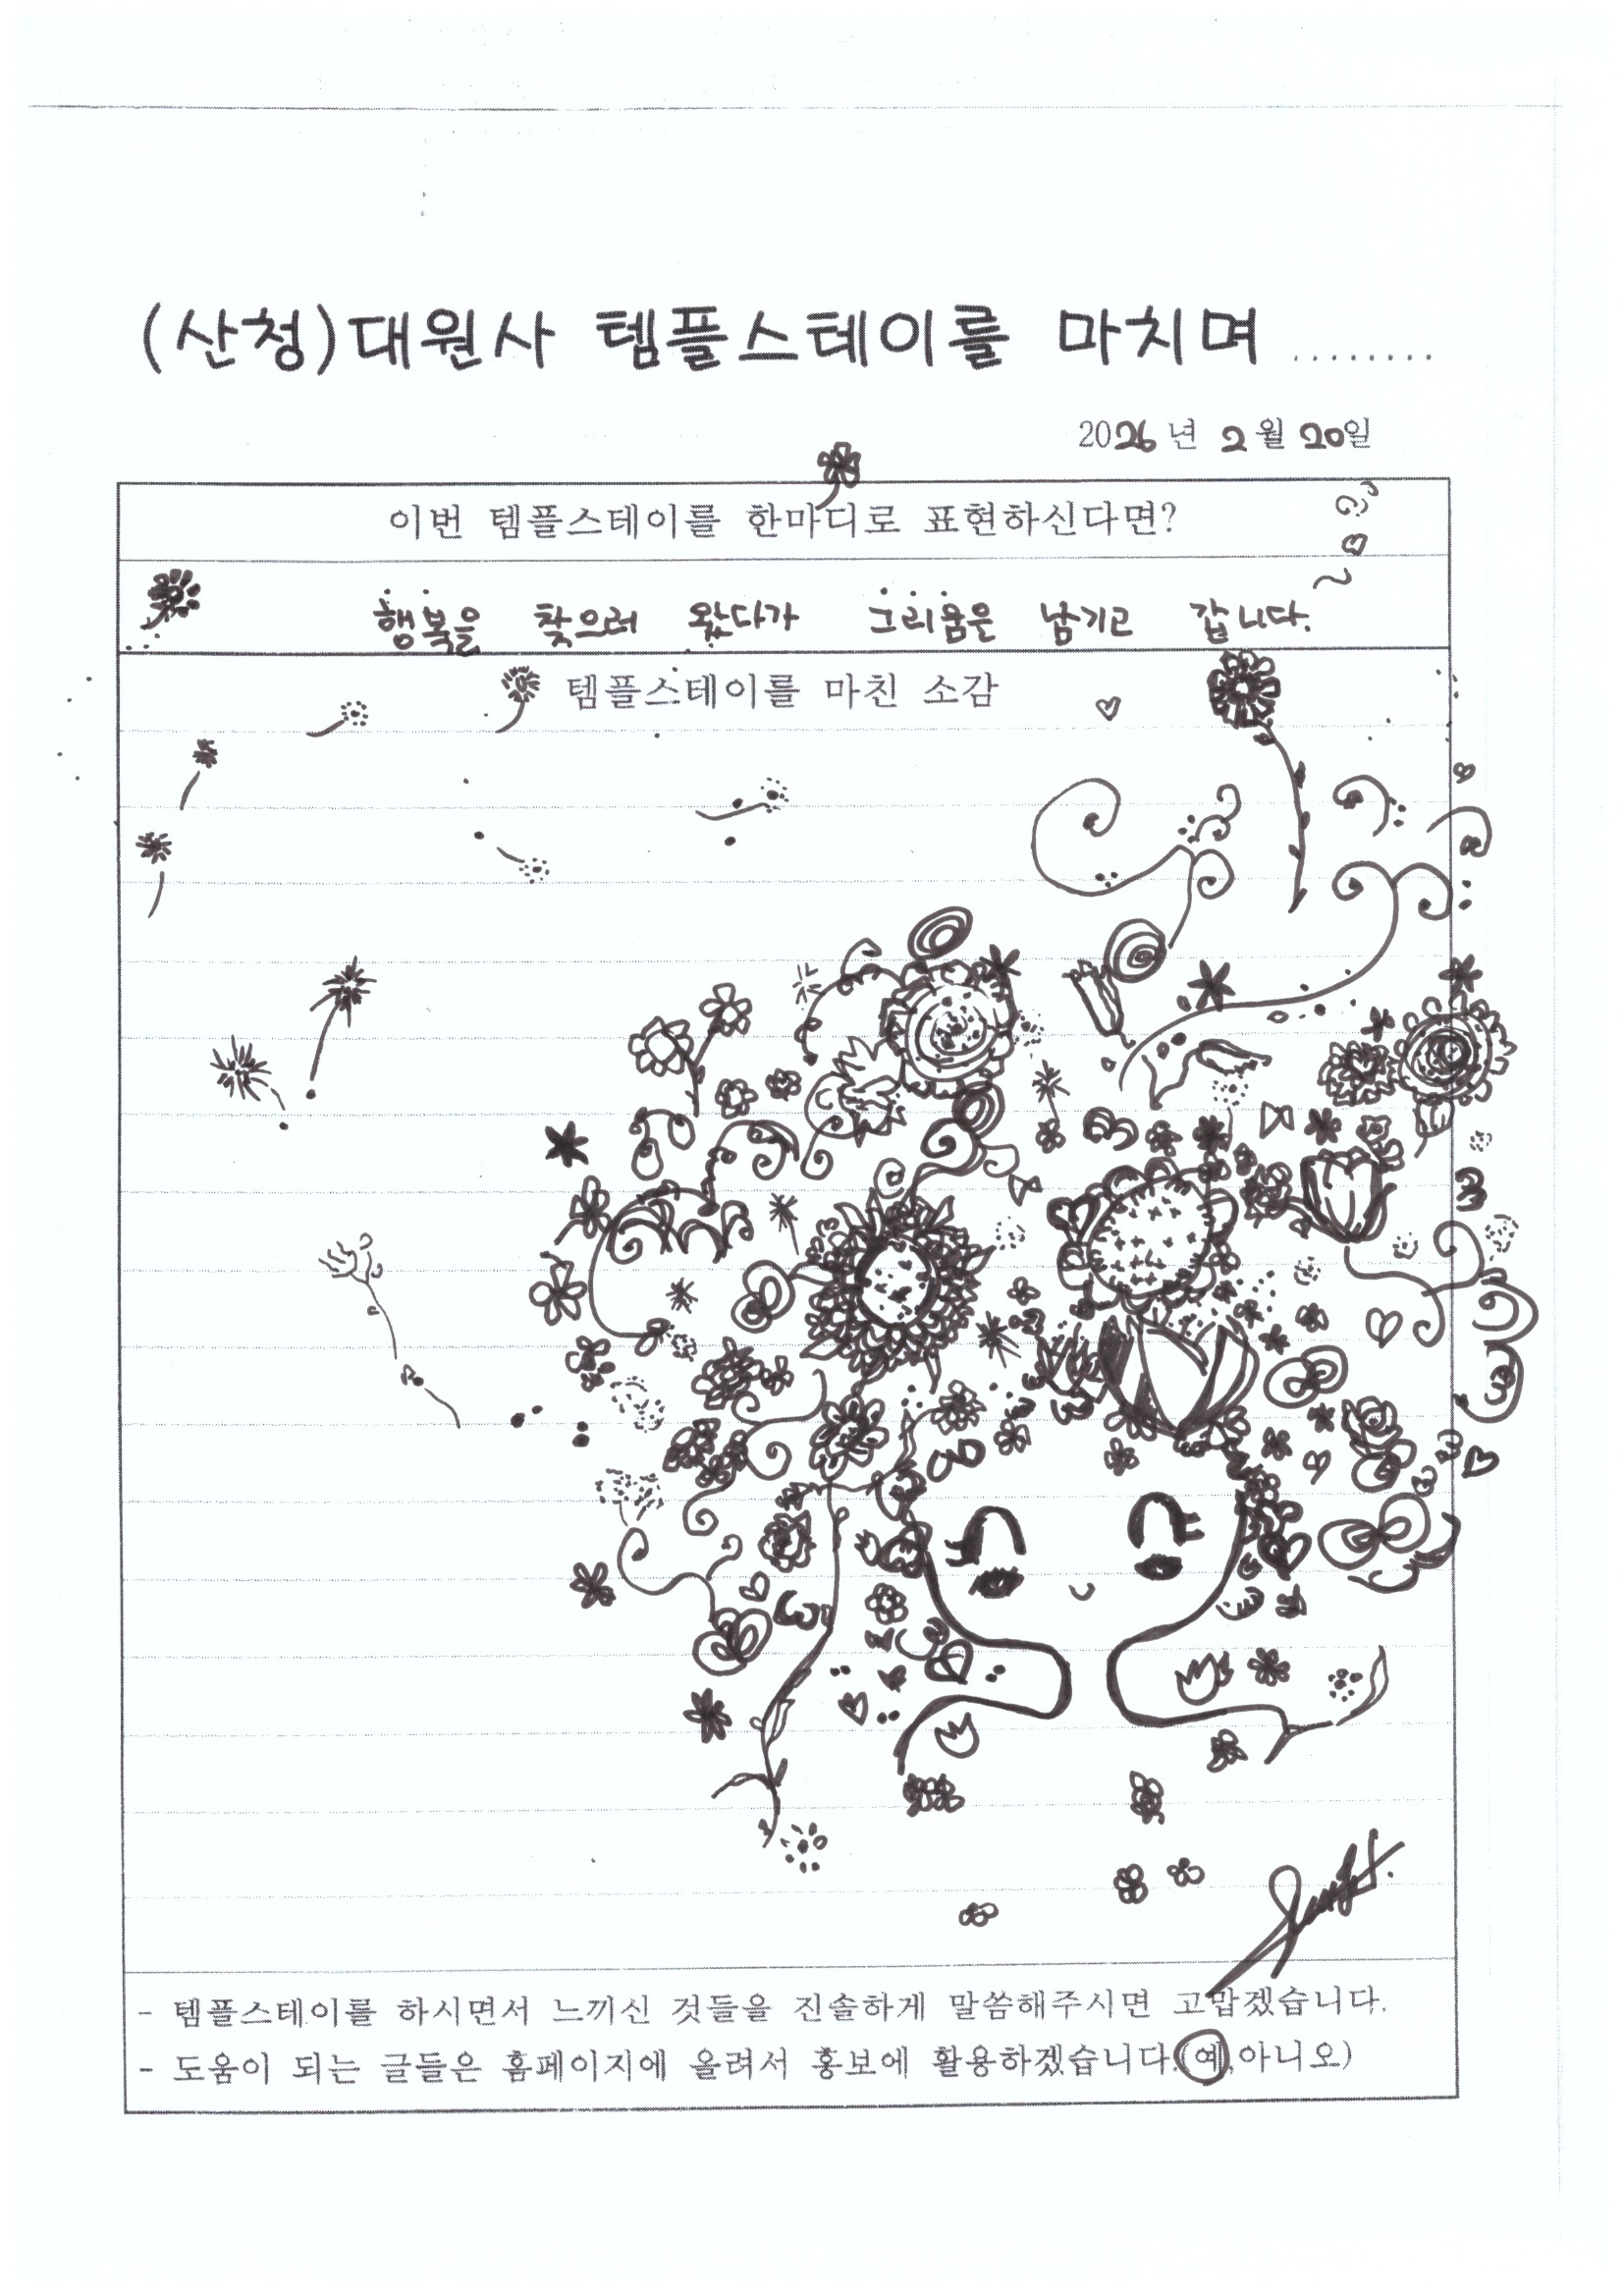 (산청)대원사 템플스테이를 마치며........
2026년 2월 20일
이번 템플스테이를 한마디로 표현하신다면?
행복을 찾으러 왔다가 그리움은 남기고 갑니다.
템플스테이를 마친 소감
- 템플스테이를 하시면서 느끼신 것들을 진솔하게 말씀해주시면 고맙겠습니다.
- 도움이 되는 글들은 홈페이지에 올려서 홍보에 활용하겠습니다.(예,아니오)